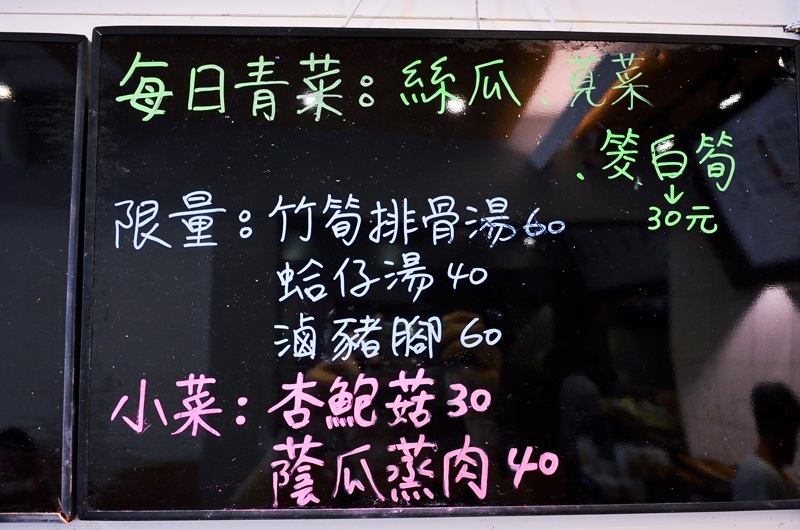 每日青菜：絲瓜、莧菜
、筊白筍
↓
30元
限量：竹筍排骨湯60
蛤仔湯40
滷豬腳60
小菜：杏鮑菇30
蔭瓜蒸肉40